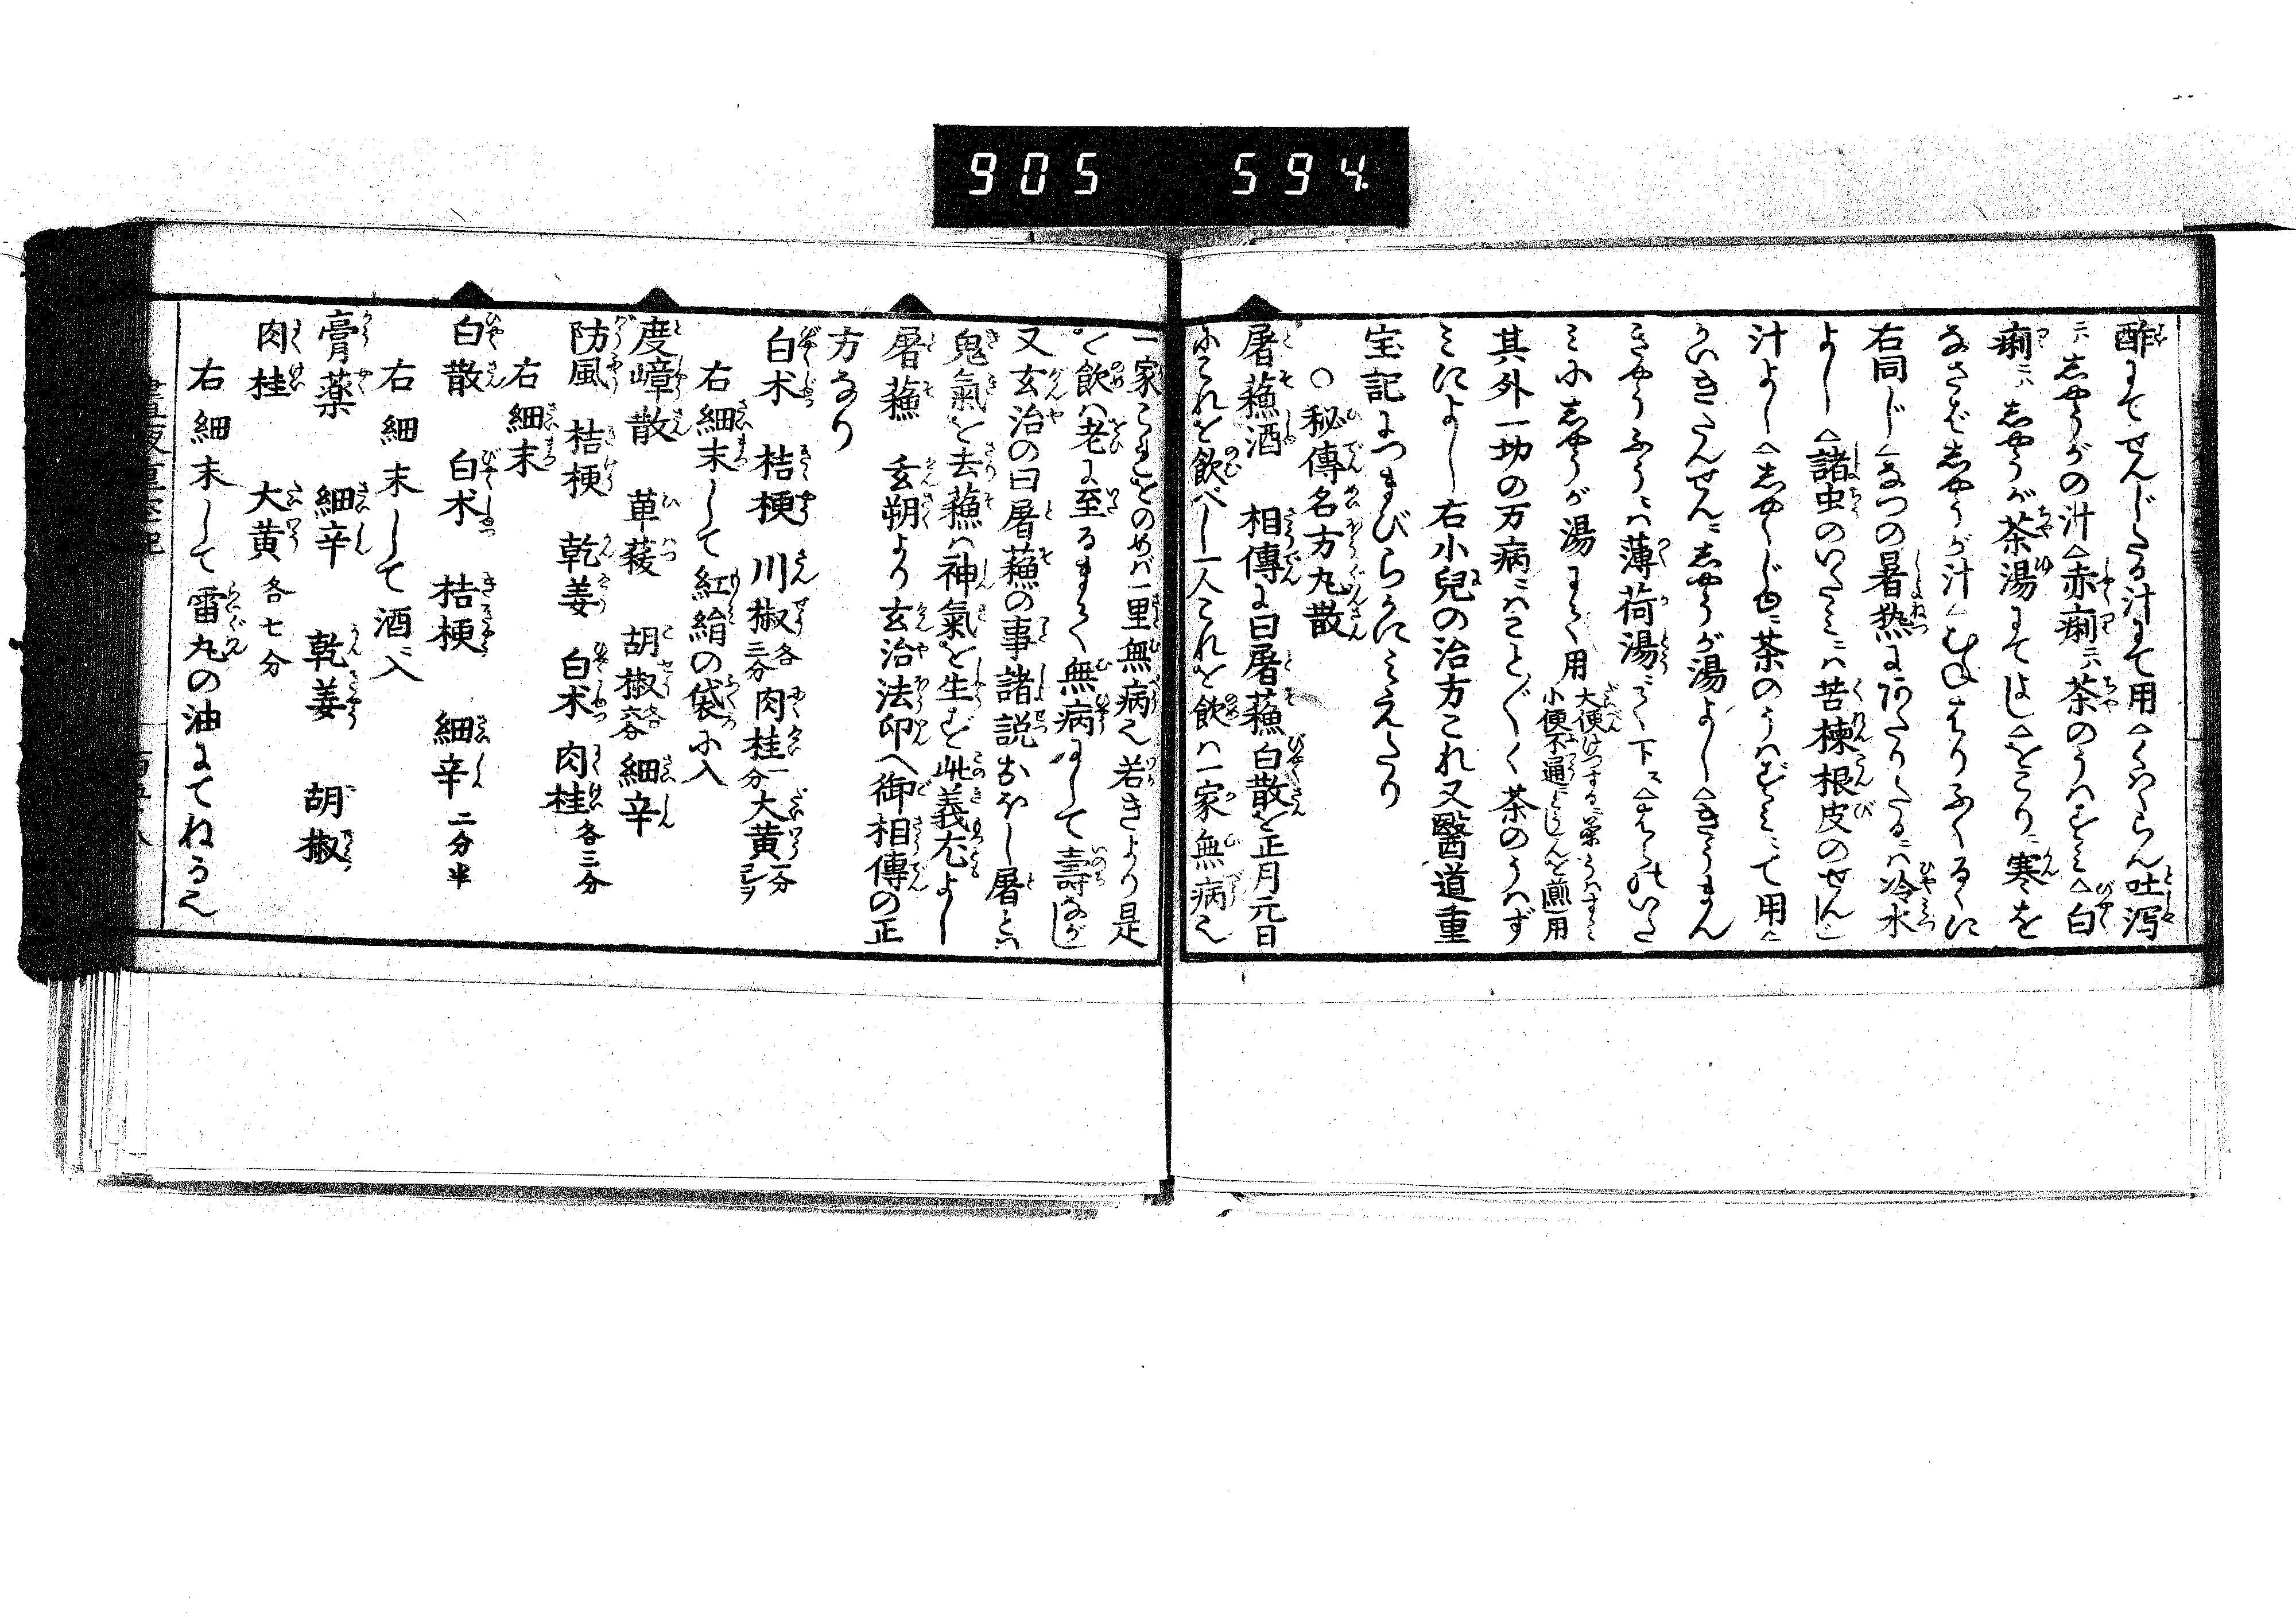 905 594
酢にてせんじたる汁にて用△くわくらん吐瀉
ニハしやうがの汁△赤痢ニハ茶のうはずミ△白
痢ニハしやうが茶湯にてよし△をこりニ寒を
なさばしやうが汁△むねはりふくるゝに
右同じ△なつの暑热にあたりたるニハ冷水
よし△諸虫のいたミニハ苦楝根皮のせんじ
汁よし△しやくじゆニ茶のうはずミニて用△
かいきたんせんニしやうが湯よし△きうまん
きやうふうニハ薄荷湯ニて下ス△はらのいた
ミにしやうが湯にて用 大便けつするニ茶うはすミ 小便不通とうしんを煎用
其外一切の万病ニハこと〴〵く茶のうはず
ミによし右小兒の治方これ又醫道重
宝記につまびらかにミえたり
○秘傳名方丸散
屠蘓酒 相傳に曰屠蘓白散を正月元日
にこれを飲べし一人これを飲ハ一家無病也
一家これをのめバ一里無病也若きより是
を飲ハ老に至るまで無病にして壽ながし
又玄治の曰屠蘓の事諸説おほし屠とハ
鬼氣を去蘓ハ神氣を生ず此義尤よし
屠蘓 玄朔より玄治法印へ御相傳の正
方なり
白朮 桔梗 川椒各三分 肉桂一分 大黄一分
右細末して紅絹の袋に入
度嶂散 草薢 胡椒各六分 細辛
防風 桔梗 乾姜 白朮 肉桂各三分
右細末
白散 白朮 桔梗 細辛 二分半
右細末して酒ニ入
膏薬 細辛 乾姜 胡椒
肉桂 大黄 各七分
右細末して雷丸の油にてねる也